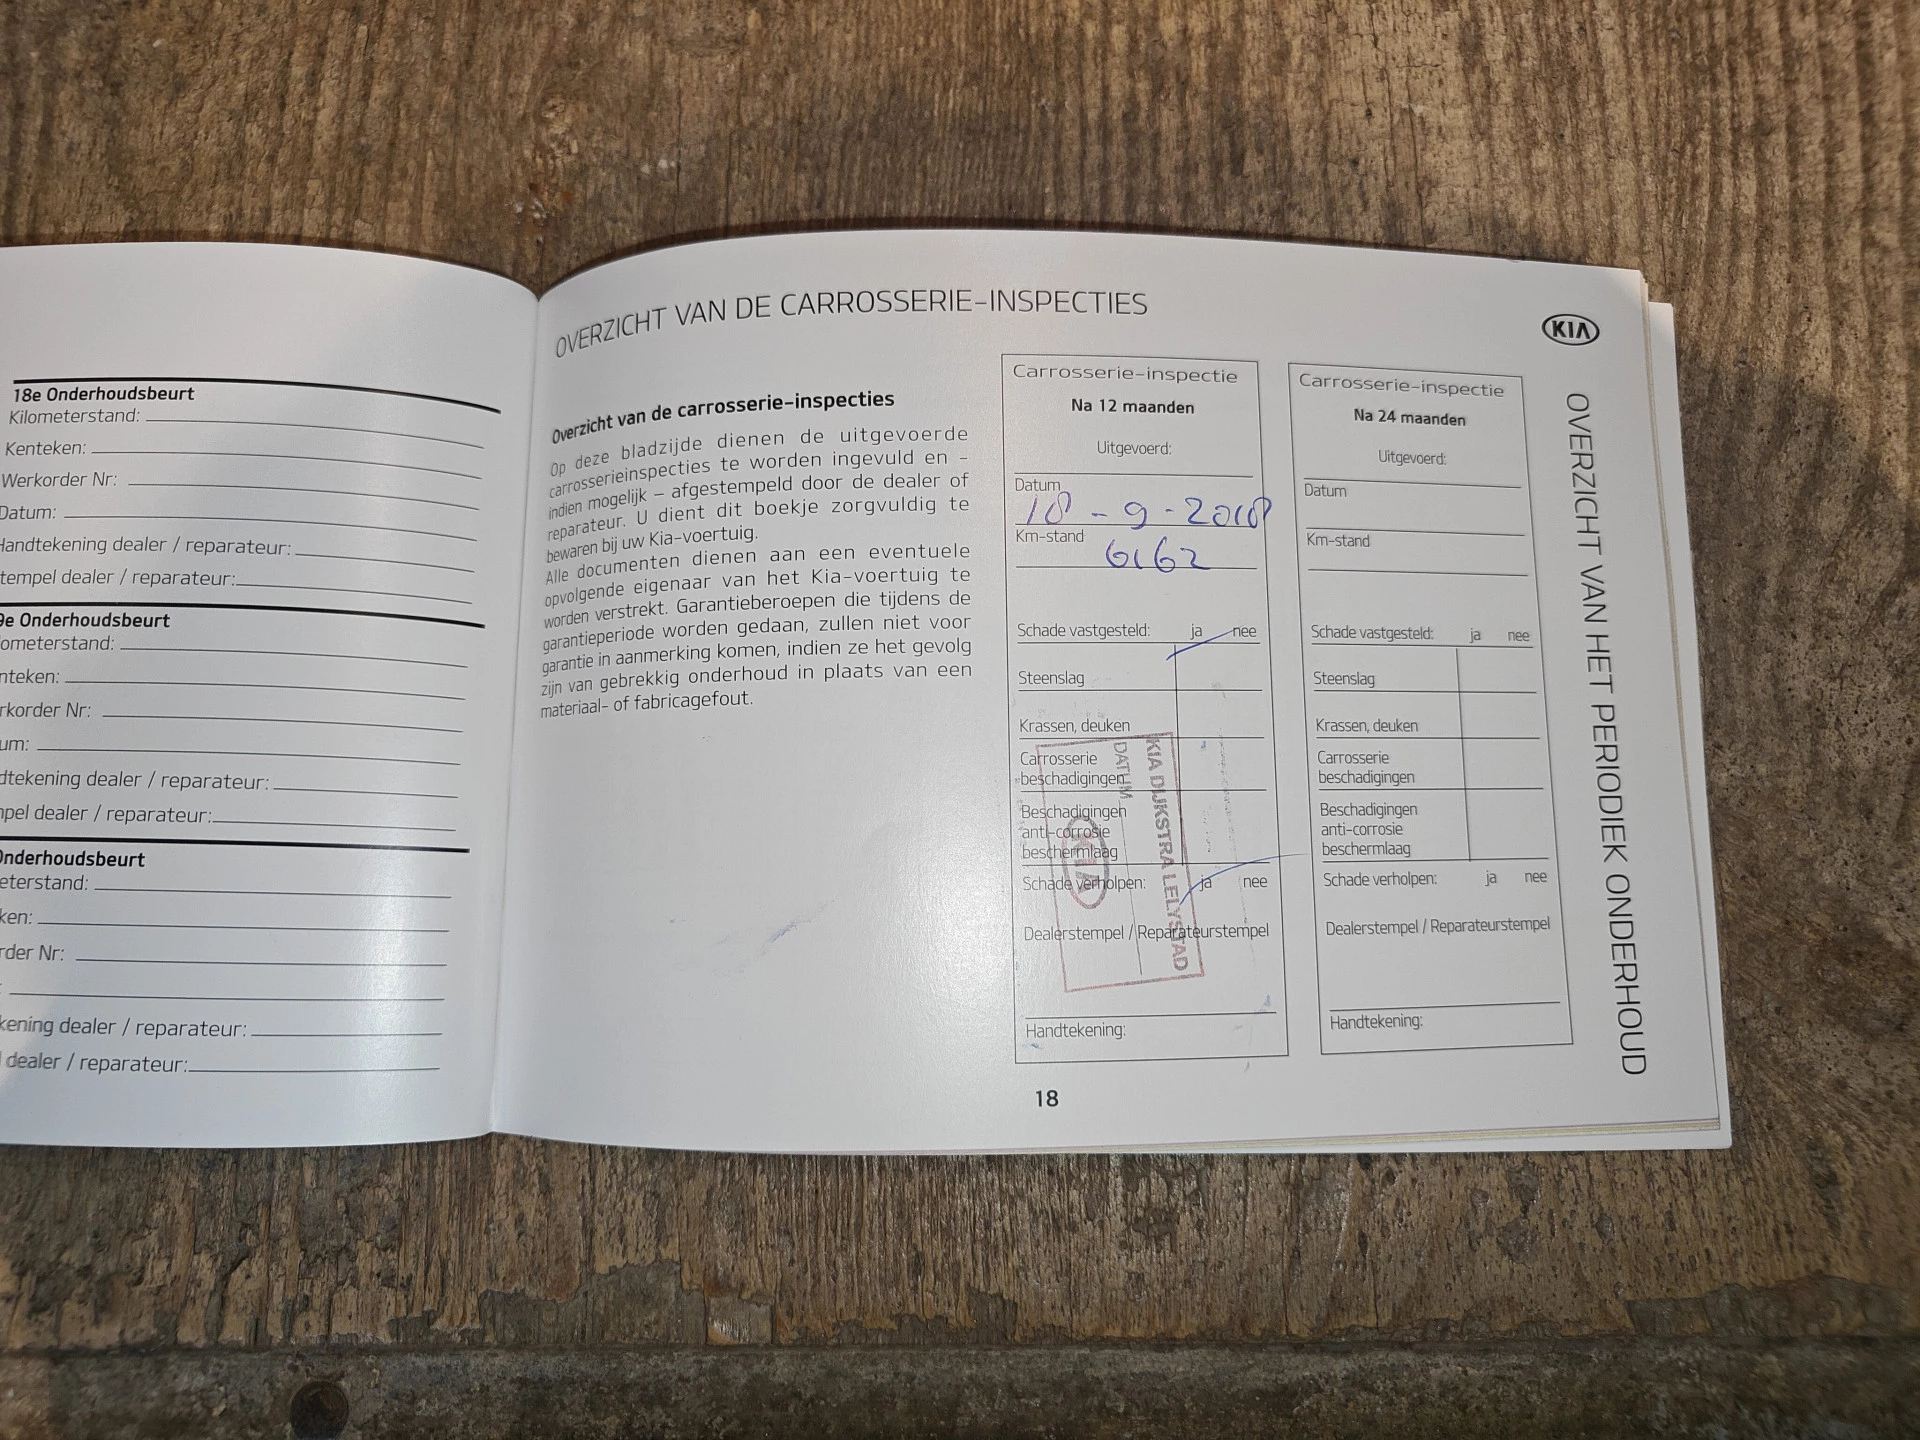 18e Onderhoudsbeurt
Kilometerstand:
Kenteken:
Werkorder Nr:
Datum:
Handtekening dealer / reparateur:
tempel dealer / reparateur:
9e Onderhoudsbeurt
ometerstand:
nteken:
rkorder Nr:
um:
dtekening dealer / reparateur:
pel dealer / reparateur:
Onderhoudsbeurt
eterstand:
ken:
rder Nr:
:
kening dealer / reparateur:
dealer / reparateur:
OVERZICHT VAN DE CARROSSERIE-INSPECTIES
Overzicht van de carrosserie-inspecties
Op deze bladzijde dienen de uitgevoerde
carrosserieinspecties te worden ingevuld en -
indien mogelijk - afgestempeld door de dealer of
reparateur. U dient dit boekje zorgvuldig te
bewaren bij uw Kia-voertuig.
Alle documenten dienen aan een eventuele
opvolgende eigenaar van het Kia-voertuig te
worden verstrekt. Garantieberoepen die tijdens de
garantieperiode worden gedaan, zullen niet voor
garantie in aanmerking komen, indien ze het gevolg
zijn van gebrekkig onderhoud in plaats van een
materiaal- of fabricagefout.
Carrosserie-inspectie
Na 12 maanden
Uitgevoerd:
Datum
18 - 9 - 2018
Km-stand
6162
Schade vastgesteld: ja nee
Steenslag
Krassen, deuken
Carrosserie
beschadigingen
Beschadigingen
anti-corrosie
beschermlaag
Schade verholpen: ja nee
Dealerstempel / Reparateurstempel
Handtekening:
KIA DIJKSTRA LELYSTAD
DATUM
KIA
Carrosserie-inspectie
Na 24 maanden
Uitgevoerd:
Datum
Km-stand
Schade vastgesteld: ja nee
Steenslag
Krassen, deuken
Carrosserie
beschadigingen
Beschadigingen
anti-corrosie
beschermlaag
Schade verholpen: ja nee
Dealerstempel / Reparateurstempel
Handtekening:
KIA
OVERZICHT VAN HET PERIODIEK ONDERHOUD
18